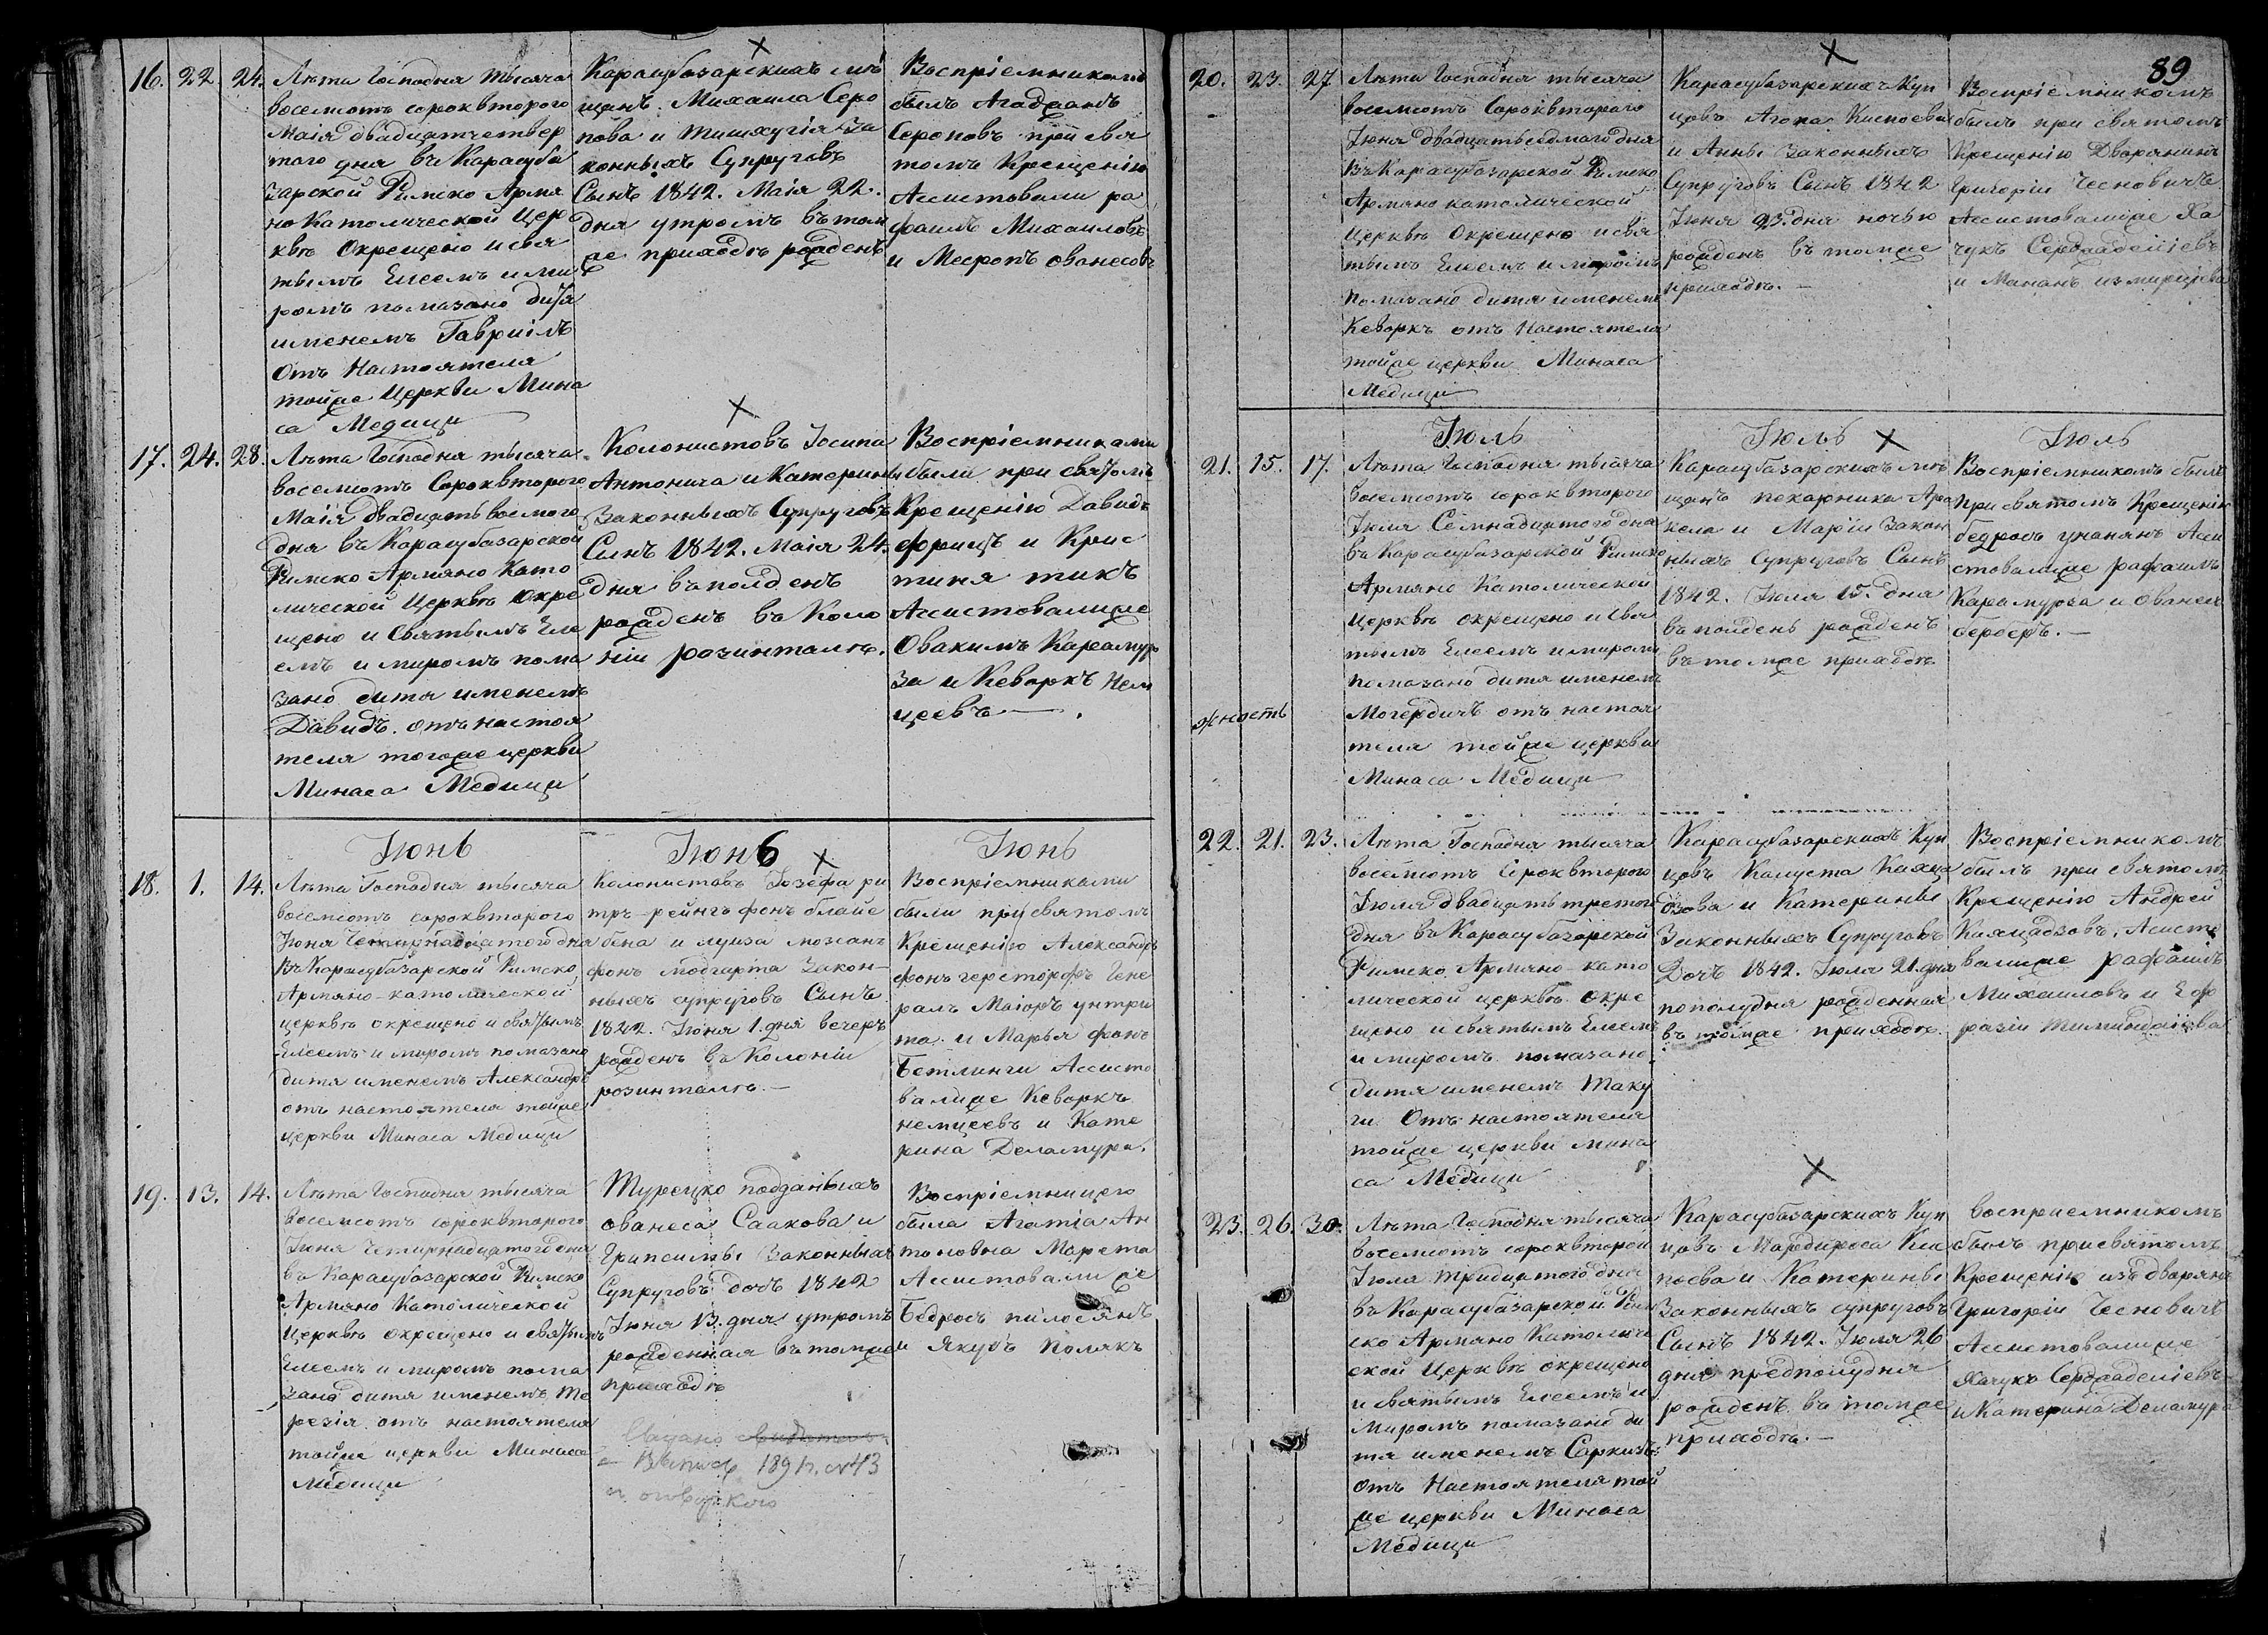 16. 22 24.
Лѣта Господня тысяча
восемсотъ сороквторого
Маія двадцатчетвер
того дня въ Карасуба
зарской Римско Армя
но Католической Цер
квѣ Окрещено и свя
тымъ Елеемъ и ми
ромъ помазано дитя
именемъ Гавріилъ
Отъ Настоятеля
тойже Церкви Мина
са Медици
Карасубазарскихъ мѣ
щанъ Михаила Серо
пова и за
конныхъ Супруговъ
Сынъ 1842. Маія 22.
дня утромъ въ том
же приходѣ рожденъ
Воспріемникомъ
былъ
Серопов при свя
томъ Крещенію
Асистовали ра
фаилъ Михаиловъ
и Месропъ Ованесовъ
17. 24. 28.
Лѣта Господня тысяча
восемсотъ Сороквторого
Маія двадцатьвосмого
дня въ Карасубазарской
Римско Армяно Като
лической Церквѣ окре
щено и Святымъ Еле
емъ и миромъ пома
зано дитя именемъ
Давидъ. отъ настоя
теля тогоже церкви
Минаса Медици
Колонистовъ Іосипа
Антонича и Катерины
Законныхъ Супруговъ
Сынъ 1842. Маія 24.
дня въ полденъ
рожденъ въ Коло
ніи розинталѣ.
Воспріемниками
были при святомъ
Крещенію Давидъ
фрицъ и Крис
тиня тикъ
Асистовалиже
Овакимъ Карамур
за и Кеворкъ Нем
цеевъ
Іюнь
Іюнь
Іюнь
18. 1. 14.
Лѣта Господня тысяча
восемсотъ сороквторого
Іюня Четирнадцатого дня
Въ Карасубазарской Римско
Армяно-католической
церквѣ окрещено и святымъ
Елеемъ и миромъ помазано
дитя именемъ Александръ
отъ настоятеля тойже
церкви Минаса Медици
Колонистовъ Іозефа ри
тръ-рейнгъ фонъ блайе
бена и луиза
фонъ Закон-
ныхъ супруговъ Сынъ
1842. Іюня 1. дня вечеръ
рожденъ въ Колоніи
розинталѣ.
Воспріемниками
были при святомъ
Крещенію Александръ
фонъ герсторфъ Гене
ралъ Маіоръ
и Марья фонъ
Бетлинги Асисто
валиже Кеворкъ
немцеевъ и Кате
рина Деламура.
19. 13. 14.
Лѣта Господня тысяча
восемсотъ сороквторого
Іюня Четирнадцатого дня
въ Карасубазарской Римско
Армяно Католической
Церквѣ окрещено и святымъ
Елеемъ и миромъ пома
зано дитя именемъ Те
резія отъ настоятеля
тойже церкви Минаса
Медици
Турецко подданыхъ
ованеса Саакова и
Грипсимы Законныхъ
Супруговъ дочъ 1842
Іюня 13. дня утромъ
рожденная въ томже
приходѣ
Воспріемницею
была Агатіа Ан
тоновна Марета
Асистовали же
Бедросъ пилосянъ
и Якубъ Полякъ
89
20. 23. 27
Лѣта Господня тысяча
восемсотъ Сороквторого
Іюня двадцатьседмого дня
Въ Карасубазарской Римско
Армяно католической
Церквѣ Окрещено и свя
тымъ Елеемъ и миромъ
помазано дитя именемъ
Кеворкъ отъ Настоятеля
тойже церкви Минаса
Медици
Карасубазарскихъ Куп
цовъ Агопа
и Анны Законныхъ
Супруговъ Сынъ 1842
Іюня 23. дня ночью
рожденъ въ томже
приходѣ.
Воспріемникомъ
былъ при святомъ
Крещенію Дворянинъ
Григоріи Чесновичъ
Асистовалиже Ха
чукъ
и
Іюль
Іюль
Іюль
21. 15. 17.
Лѣта Господня тысяча
восемсотъ сороквторого
Іюля Семнадцатого дня
въ Карасубазарской Римско
Армяно Католической
Церквѣ окрещено и Свя
тымъ Елеемъ и миромъ
помазано дитя именемъ
Могердичъ отъ настоя
теля тойже церкви
Минаса Медици
Карасубазарскихъ мѣ
щанъ пекарника Ара
кела и Маріи Закон
ныхъ Супруговъ Сынъ
1842. Іюля 15. дня
въ полденъ рожденъ
въ томже приходѣ
Воспріемникомъ былъ
при святомъ Крещенію
бедросъ унанянъ Аси
стовалиже рафаилъ
Карамурза и Ованесъ
22. 21. 23.
Лѣта Господня тысяча
восемсотъ Сороквторого
Іюля двадцатьтретого
дня въ Карасубазарской
Римско Армяно-като
лической церквѣ окре
щено и святымъ Елеемъ
и миромъ помазано
дитя именемъ Таку
ги Отъ настоятеля
тойже церкви мина
са Медици
Карасубазарскихъ Куп
цовъ
и Катерины
Законныхъ Супруговъ
Дочъ 1842. Іюля 21. дня
пополудня рожденная
въ томже приходѣ.
Воспріемникомъ
былъ при святомъ
Крещенію Андрей
Асисто
валиже рафаилъ
Михаиловъ и
23. 26. 30.
Лѣта Господня тысяча
восемсотъ сороквторого
Іюля тридцатого дня
въ Карасубазарской Рим
ско Армяно Католиче
ской Церквѣ окрещено
и святымъ Елеемъ и
миромъ помазано ди
тя именемъ Саркизъ
отъ Настоятеля той
же церкви Минаса
Медици
Карасубазарскихъ Куп
цовъ Мардироса
и Катерины
Законныхъ супруговъ
Сынъ 1842. Іюля 26
дня предполудня
рожденъ въ томже
приходѣ.
восприемникомъ
былъ при святомъ
Крещенію изъ дворянъ
Григоріи Чесновичъ
Асистовалиже
Хачукъ
и Катерина Деламура